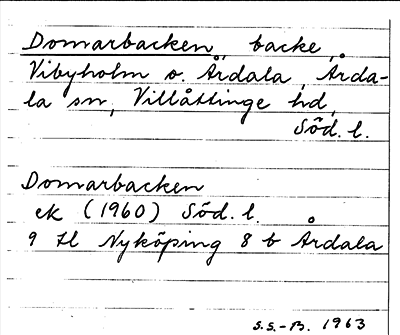 Domarbacken, backe,
Vibyholm o. Årdala, Årda-
la sn, Villåttinge hd,
Söd. l.
Domarbacken
ek (1960) Söd. l.
9 H Nyköping 8 b Årdala
S.S.-B. 1963